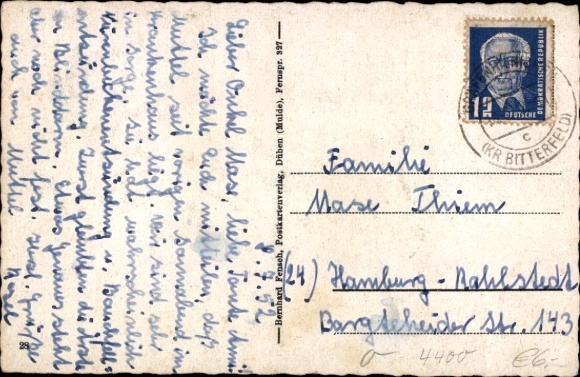 6.7.52
Lieber Onkel Max, liebe Tante Emmi!
Ich möchte Euch mitteilen, daß
Muttel seit vorigen Sonnabend im
Krankenhaus liegt. Wir sind sehr
in Sorge, sie hat wahrscheinlich
Hirnhautentzündung u. Bauchfell-
entzündung. Zuerst glaubten die Ärzte
an Blinddarm. Etwas Genaues steht
aber noch nicht fest. Herzl. Grüße
auch von Muttel
28
Bernhard Fensch, Postkartenverlag, Düben (Mulde), Fernspr. 327
12
DEUTSCHE
DEMOKRATISCHE REPUBLIK
c
(KR BITTERFELD)
Familie
Max Thiem
(24) Hamburg-Rahlstedt
Bargteheider Str. 143
4400
€6,-